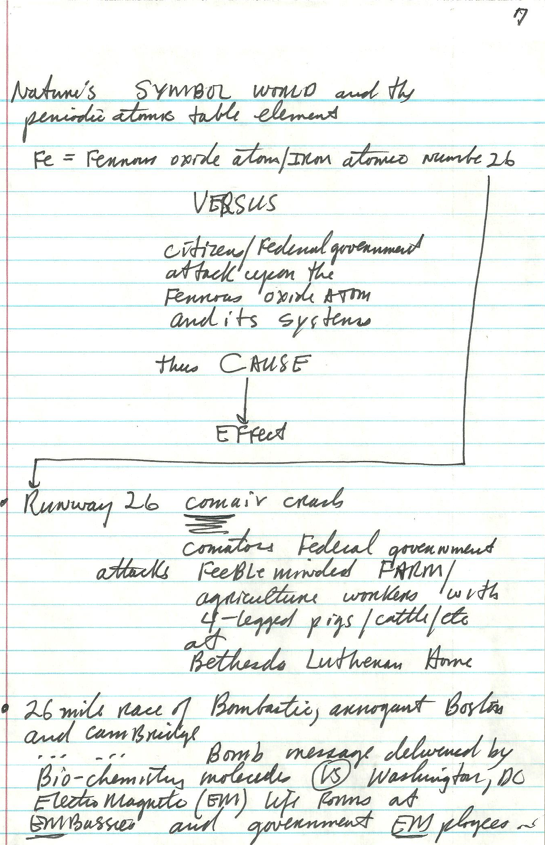 7
Nature's SYMBOL WORLD and the
periodic atomic table element
Fe = Ferrous oxide atom/Iron atomic number 26
VERSUS
citizen/Federal government
attack upon the
Ferrous oxide ATOM
and its systems
thus CAUSE
EFFect
• Runway 26 comair crash
comatose Federal government
attacks FeeBLe minded FARM/
agriculture workers with
4-legged pigs/cattle/etc
at
Bethesda Lutheran Home
• 26 mile race of Bombastic, arrogant Boston
and camBridge
... ... Bomb message delivered by
Bio-chemistry molecules VS Washington, DC
ElectroMagnetic (EM) life forms at
EMBassies and government EMployees